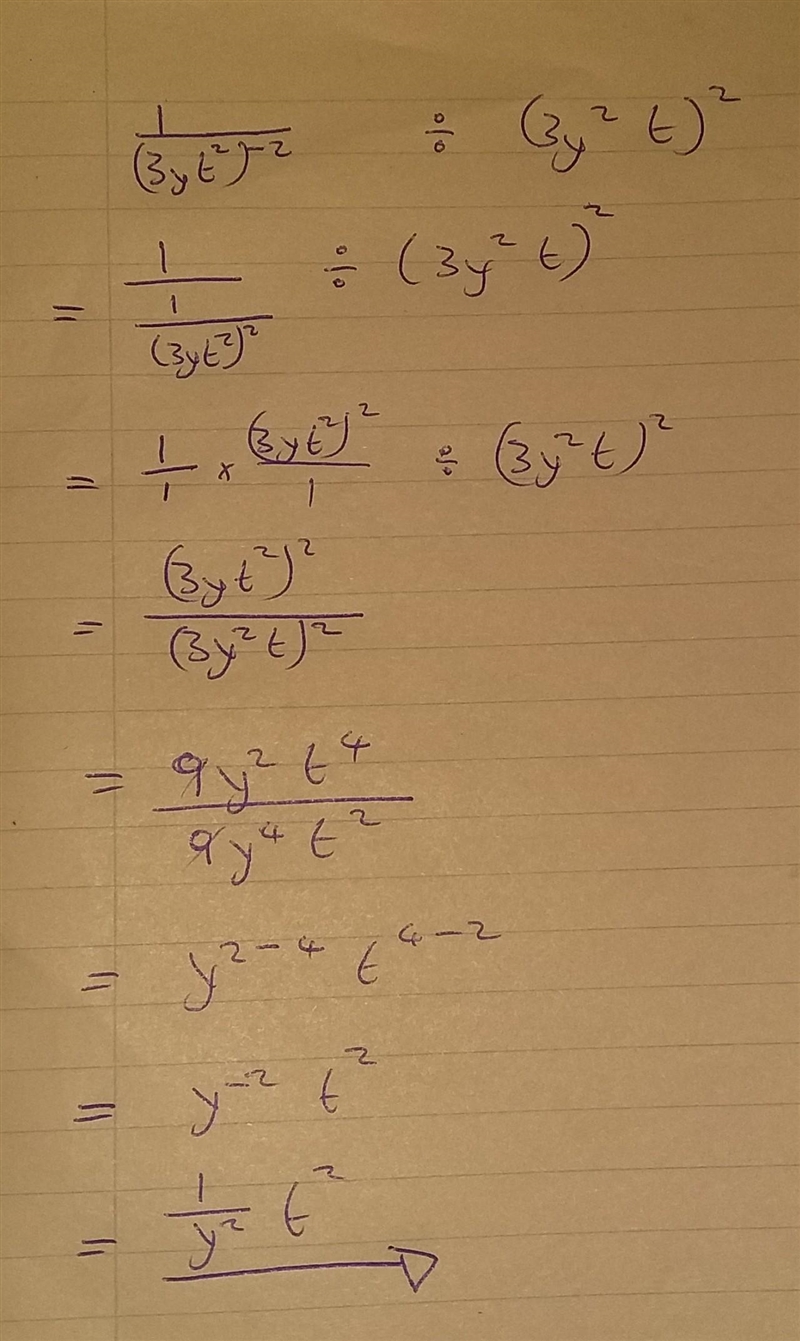 1/(3yt²)⁻² ÷ (3y² t)²
= 1/(1/(3yt²)²) ÷ (3y² t)²
= 1/1 × (3yt²)²/1 ÷ (3y²t)²
= (3yt²)²/(3y²t)²
= 9y² t⁴/9y⁴ t²
= y²⁻⁴ t⁴⁻²
= y⁻² t²
= 1/y² t²